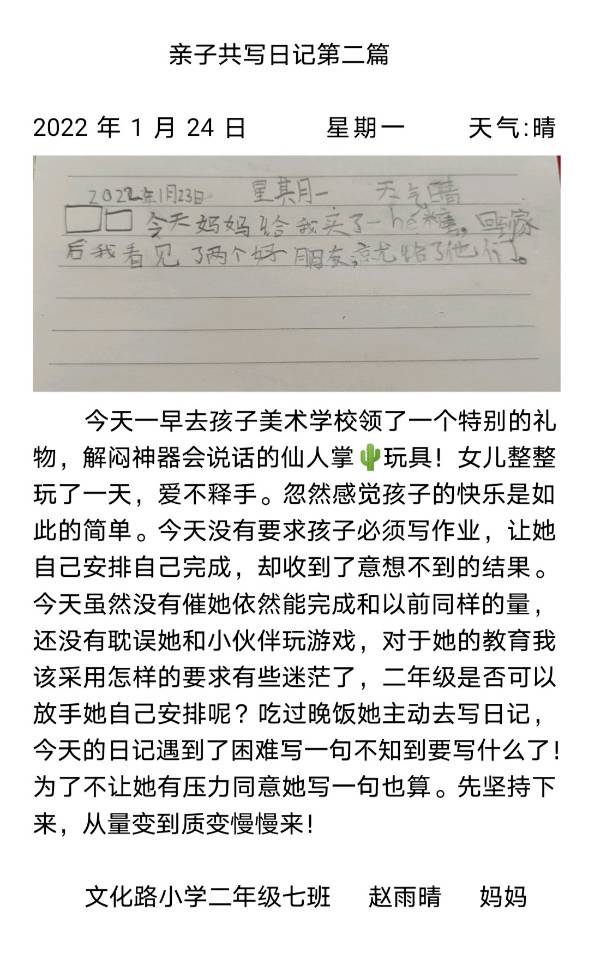 亲子共写日记第二篇
2022 年 1 月 24 日 星期一 天气:晴
2022年1月23日 星其月一 天气晴
今天妈妈给我买了一hé糖。回到家
后我看见了两个好朋友,就给了他们。
今天一早去孩子美术学校领了一个特别的礼
物，解闷神器会说话的仙人掌🌵玩具！女儿整整
玩了一天，爱不释手。忽然感觉孩子的快乐是如
此的简单。今天没有要求孩子必须写作业，让她
自己安排自己完成，却收到了意想不到的结果。
今天虽然没有催她依然能完成和以前同样的量，
还没有耽误她和小伙伴玩游戏，对于她的教育我
该采用怎样的要求有些迷茫了，二年级是否可以
放手她自己安排呢？吃过晚饭她主动去写日记，
今天的日记遇到了困难写一句不知到要写什么了！
为了不让她有压力同意她写一句也算。先坚持下
来，从量变到质变慢慢来！
文化路小学二年级七班 赵雨晴 妈妈